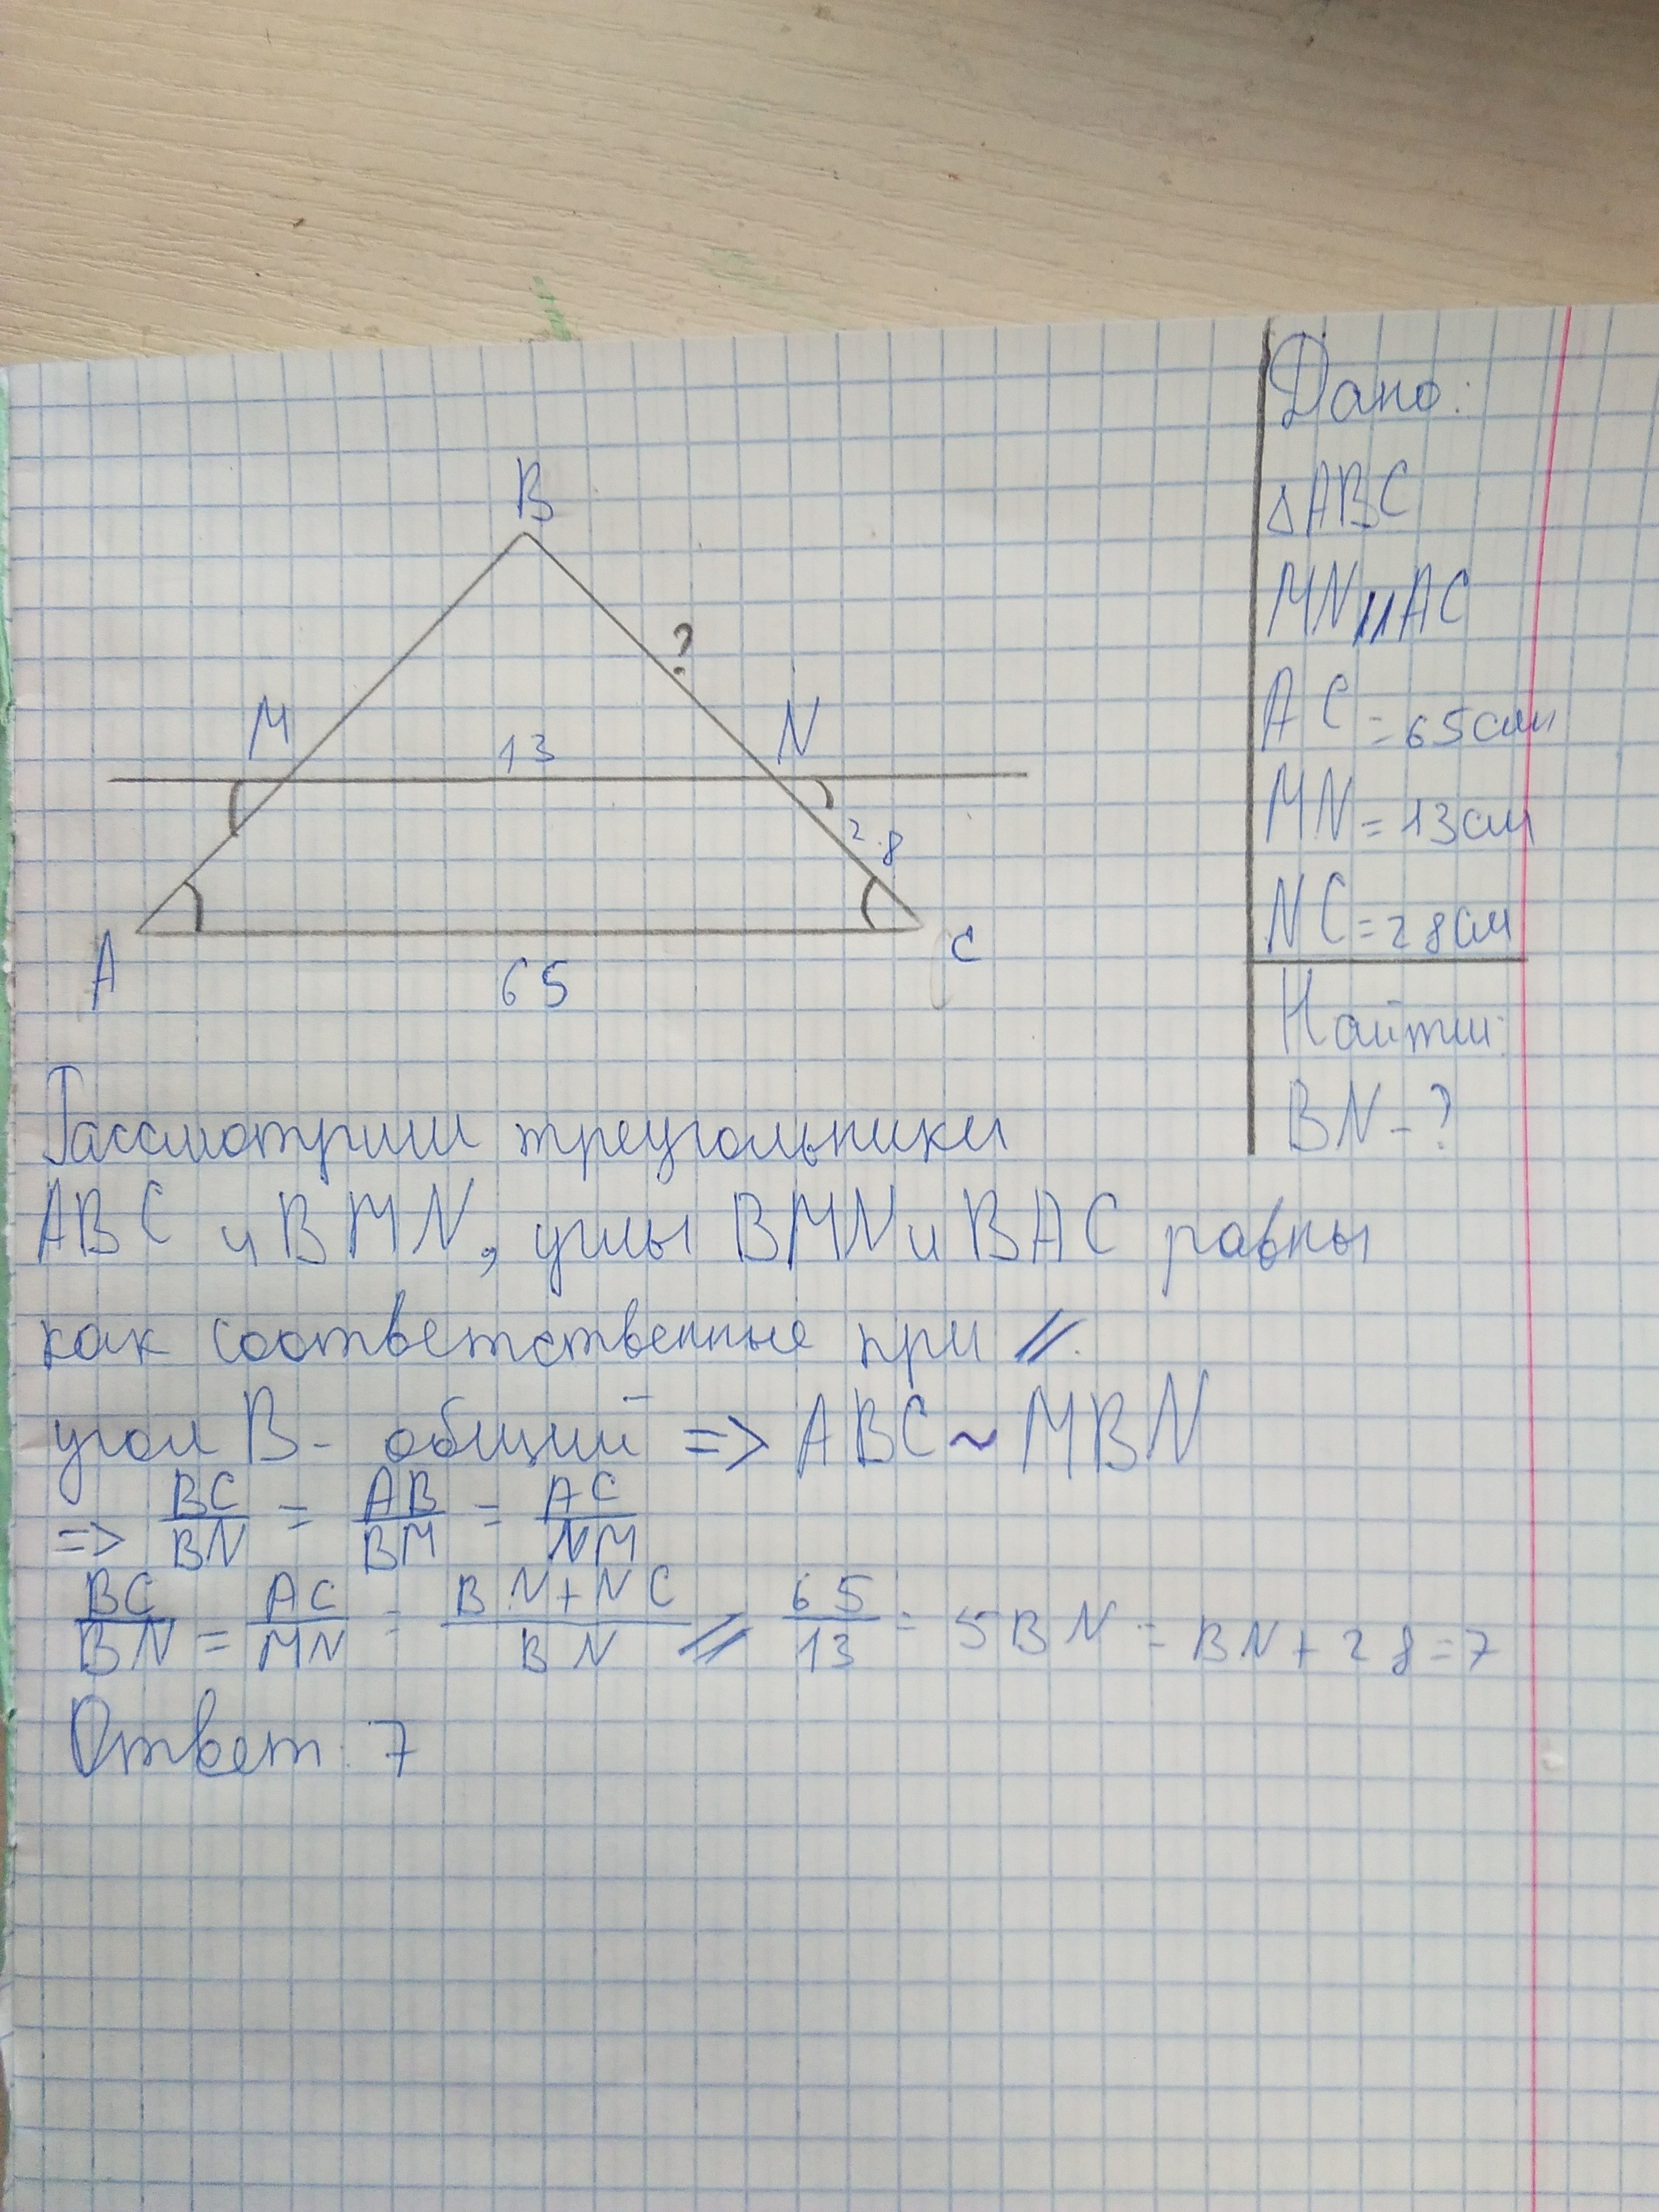 Дано:
B
△ABC
MN||AC
?
M
13
N
AC = 65см
28
MN = 13см
NC = 28см
A
65
C
Найти:
BN - ?
Рассмотрим треугольники
ABC и BMN, углы BMN и BAC равны
как соответственные при //.
угол B - общий => ABC ~ MBN
=> BC/BN = AB/BM = AC/NM
BC/BN = AC/MN = BN+NC/BN // 65/13 = 5BN = BN + 28 = 7
Ответ: 7